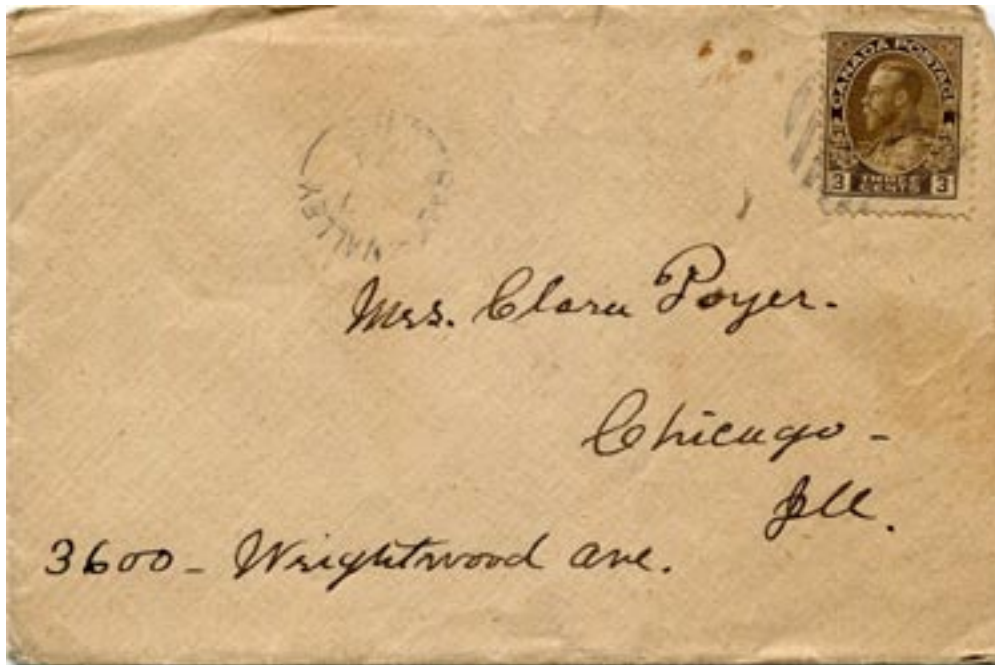 CANADA POSTAGE
3 THREE CENTS 3
VALLEY
Mrs. Clara Poyer.
Chicago -
Ill.
3600 - Wrightwood ave.